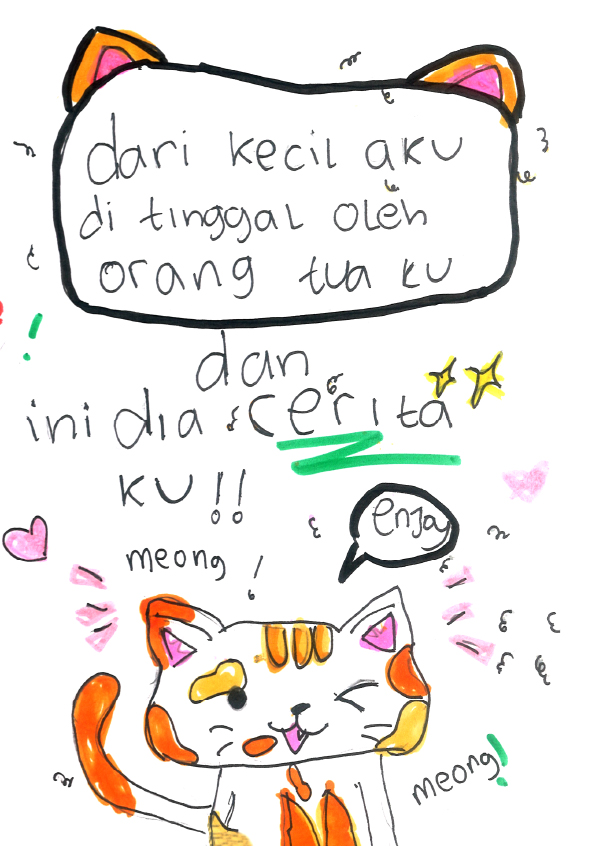 dari kecil aku
di tinggal oleh
orang tua ku
dan
ini dia cerita
ku!!
enjoy
meong!
meong!